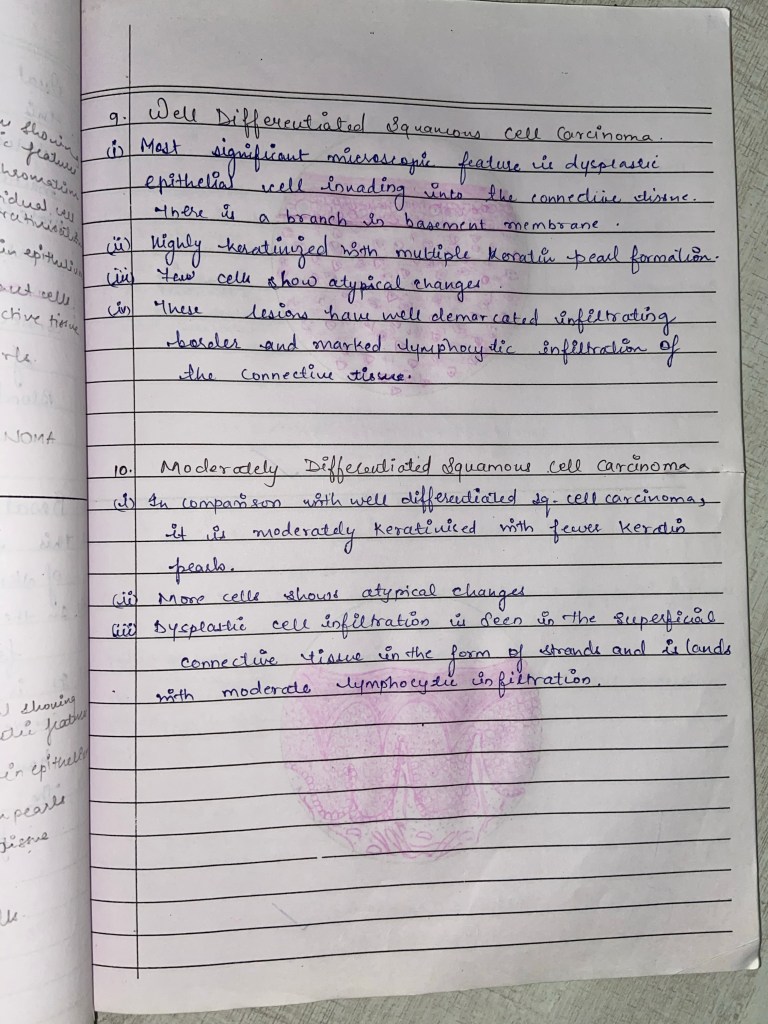 9. Well Differentiated Squamous cell Carcinoma.
(i) Most significant microscopic feature is dysplastic
epithelial cell invading into the connective tissue.
There is a branch in basement membrane.
(ii) Highly keratinized with multiple Keratin pearl formation.
(iii) Few cells show atypical changes.
(iv) These lesions have well demarcated infiltrating
border and marked lymphocytic infiltration of
the connective tissue.
10. Moderately Differentiated Squamous cell Carcinoma
(i) In comparison with well differentiated sq. cell carcinoma,
it is moderately Keratinised with fewer Keratin
pearls.
(ii) More cells shows atypical changes
(iii) Dysplastic cell infiltration is seen in the superficial
connective tissue in the form of strands and islands
with moderate lymphocytic infiltration.
showing
feature
in epitheliu
cells
ctive tissue
NOMA
showing
feature
in epithel
pearls
tissue